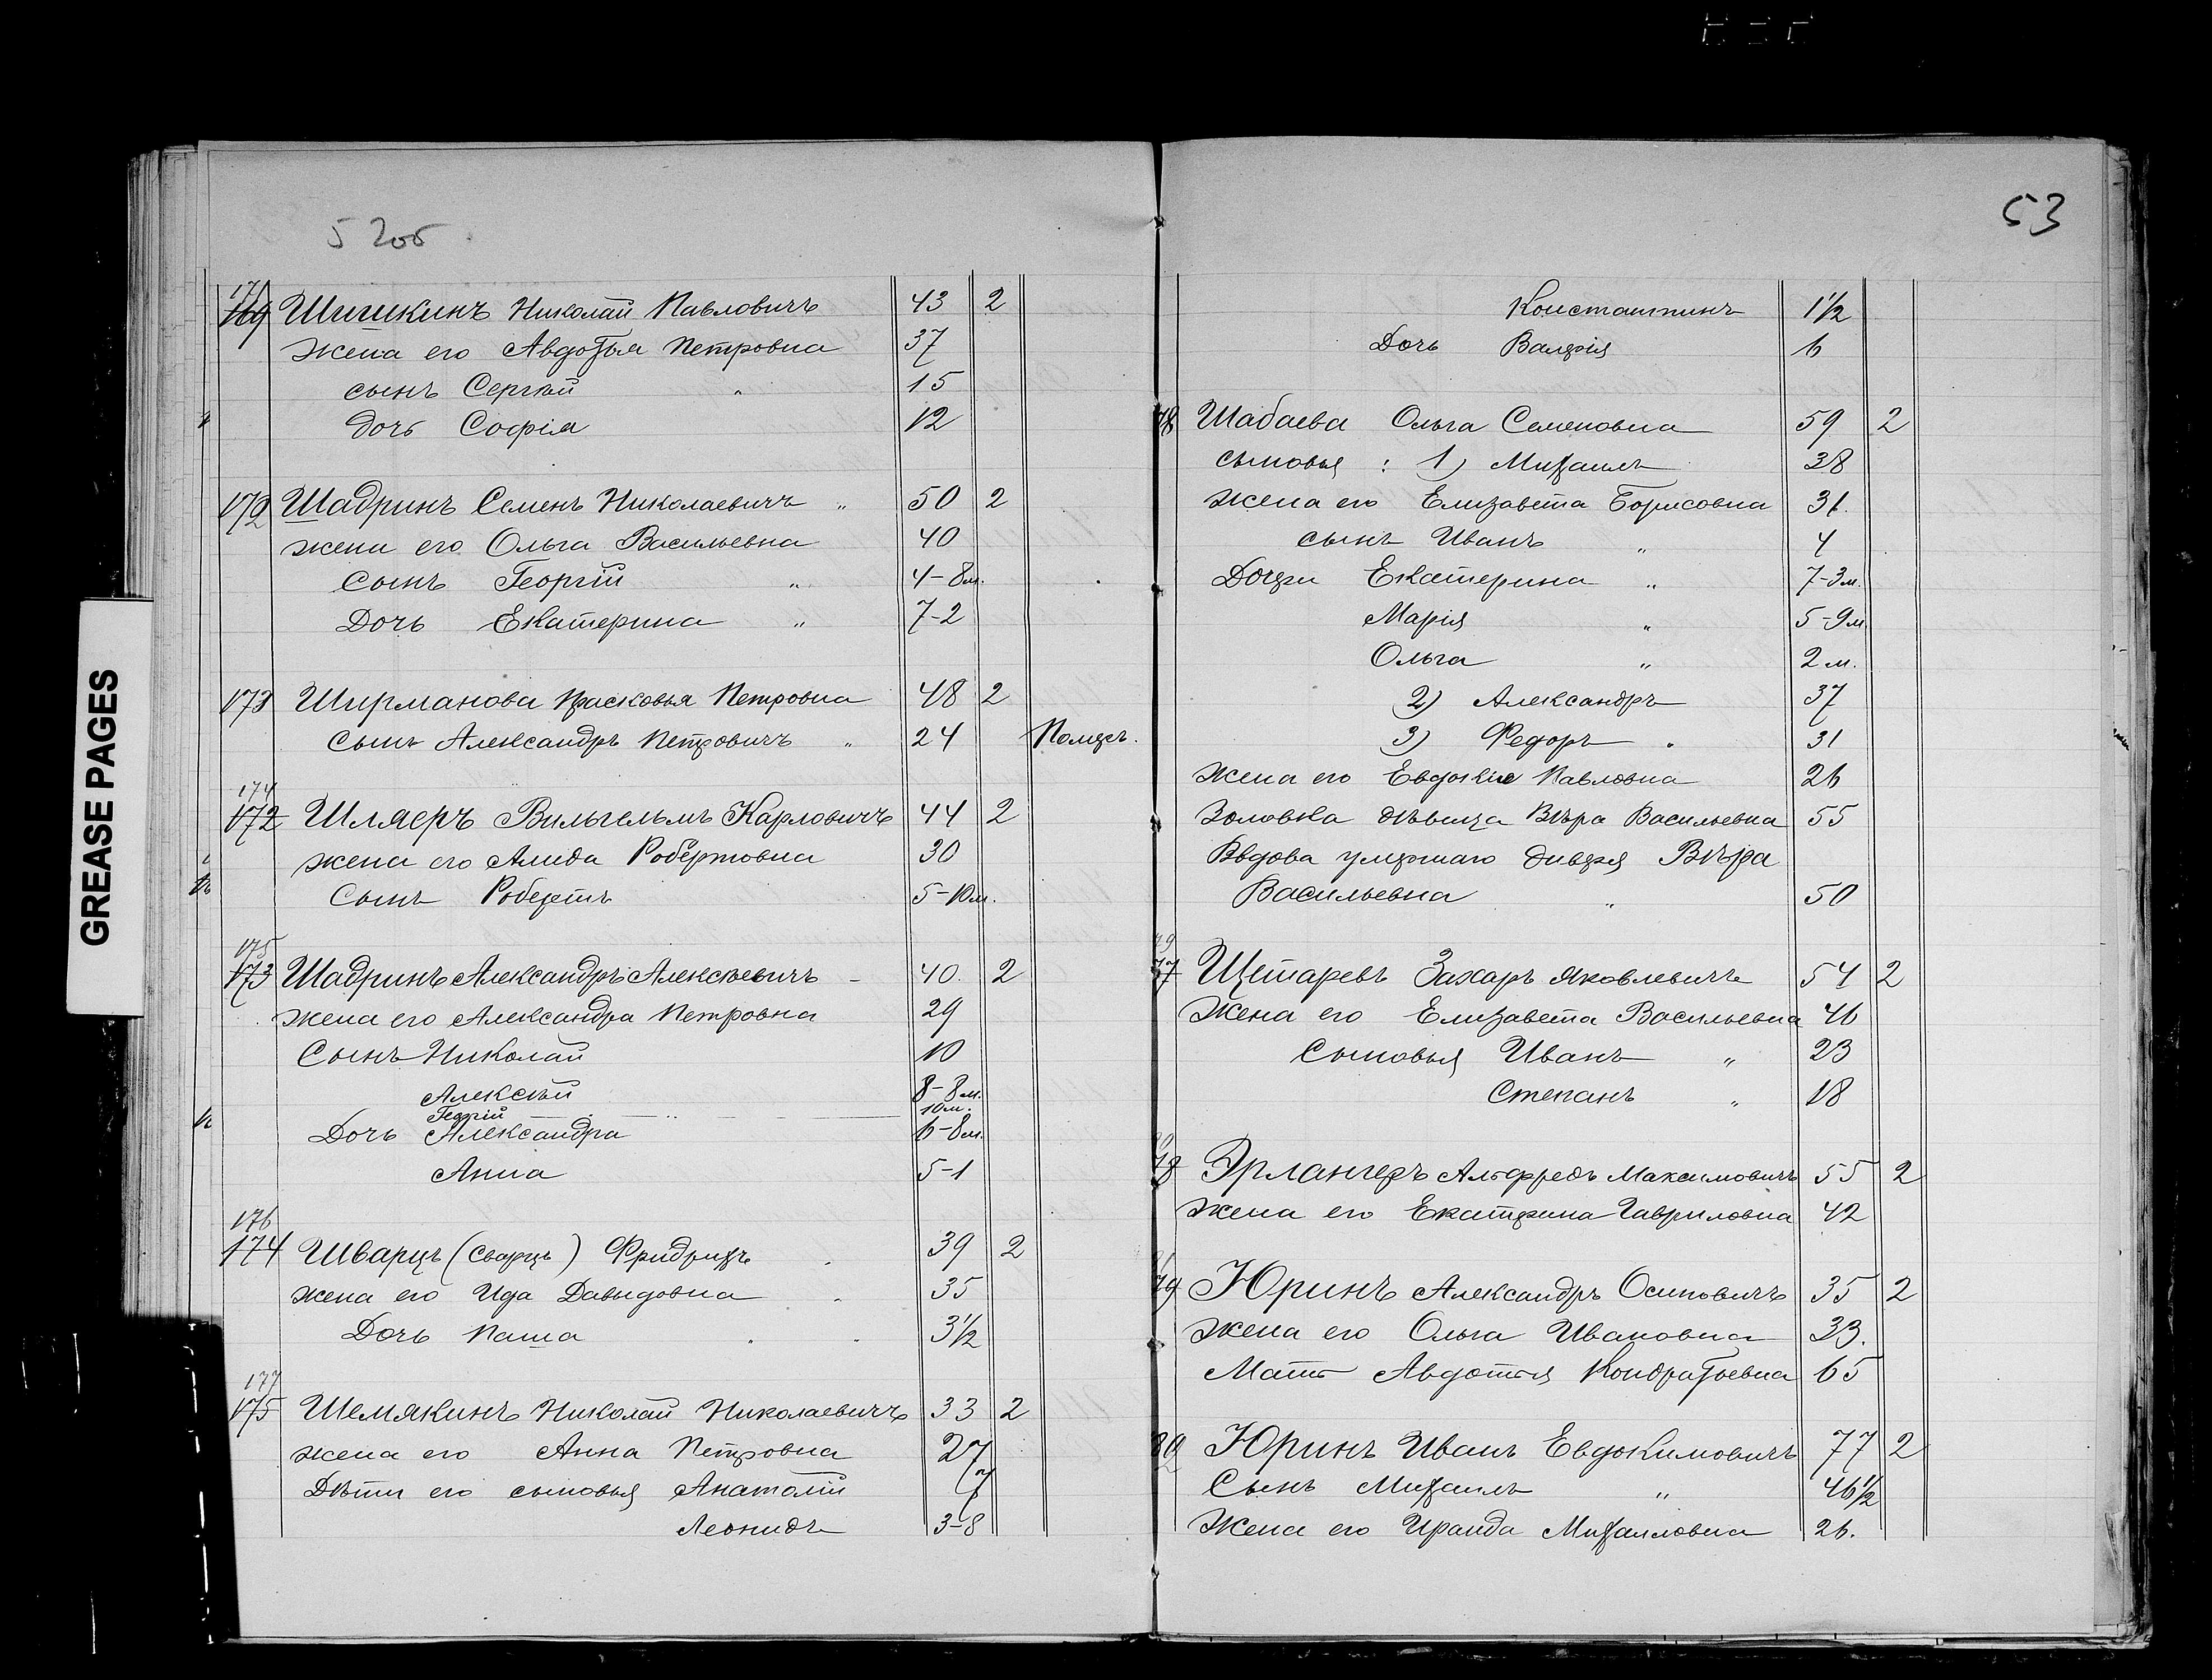 52об
171 169 Шишкинъ Николай Павловичъ 43 2
Жена его Авдотья Петровна 37
сынъ Сергѣй " 15
дочь Софія 12
172 Шадринъ Семенъ Николаевичъ " 50 2
жена его Ольга Васильевна 40
Сынъ Георгій " 4-8м.
Дочь Екатерина " 7-2
173 Ширманова Прасковья Петровна 48 2
Сынъ Александръ Петровичъ " 24 Померъ.
174
172 Шляеръ Вильгельмъ Карловичъ 44 2
жена его Алида Робертовна 30
Сынъ Робертъ 5-10м.
175
173 Шадринъ Александръ Алексѣевичъ - 40. 2
Жена его Александра Петровна 29
Сынъ Николай 10
Алексѣй 8-8м.
Георгій 10м.
Дочь Александра 6-8м.
Анна 5-1
176
174 Шварцъ (Сварцъ) Фридрихъ 39 2
жена его Ида Давыдовна 35
Дочь Паша 3½
177
175 Шемякинъ Николай Николаевичъ 33 2
жена его Анна Петровна 27
Дѣти его сыновья Анатолій 7
Леонидъ 3-8
GREASE PAGES
53
Константинъ 1½
Дочь Валерія 6
78 Шабаева Ольга Семеновна 59 2
сыновья : 1) Михаилъ 38
жена его Елизавета Борисовна 31.
сынъ Иванъ " 4
Дочери Екатерина " 7-3м.
Марія " 5-9м.
Ольга " 2м.
2) Александръ 37
3) Федоръ " 31
жена его Евдокія Павловна 26
Золовка дѣвица Вѣра Васильевна 55
Вдова умершаго диверя Вѣра
Васильевна " 50
79
77 Щетаревъ Захаръ Яковлевичъ 54 2
Жена его Елизавета Васильевна 46
Сыновья Иванъ " 23
Степанъ " 18
80
78 Эрлангеръ Альфредъ Максимовичъ 55 2
жена его Екатерина Гавриловна 42
81
79 Юринъ Александръ Осиповичъ 35 2
жена его Ольга Ивановна 33.
Мать Авдотья Кондратьевна 65
82 Юринъ Иванъ Евдокимовичъ 77 2
Сынъ Михаилъ " 46½
Жена его Ираида Михайловна 26.